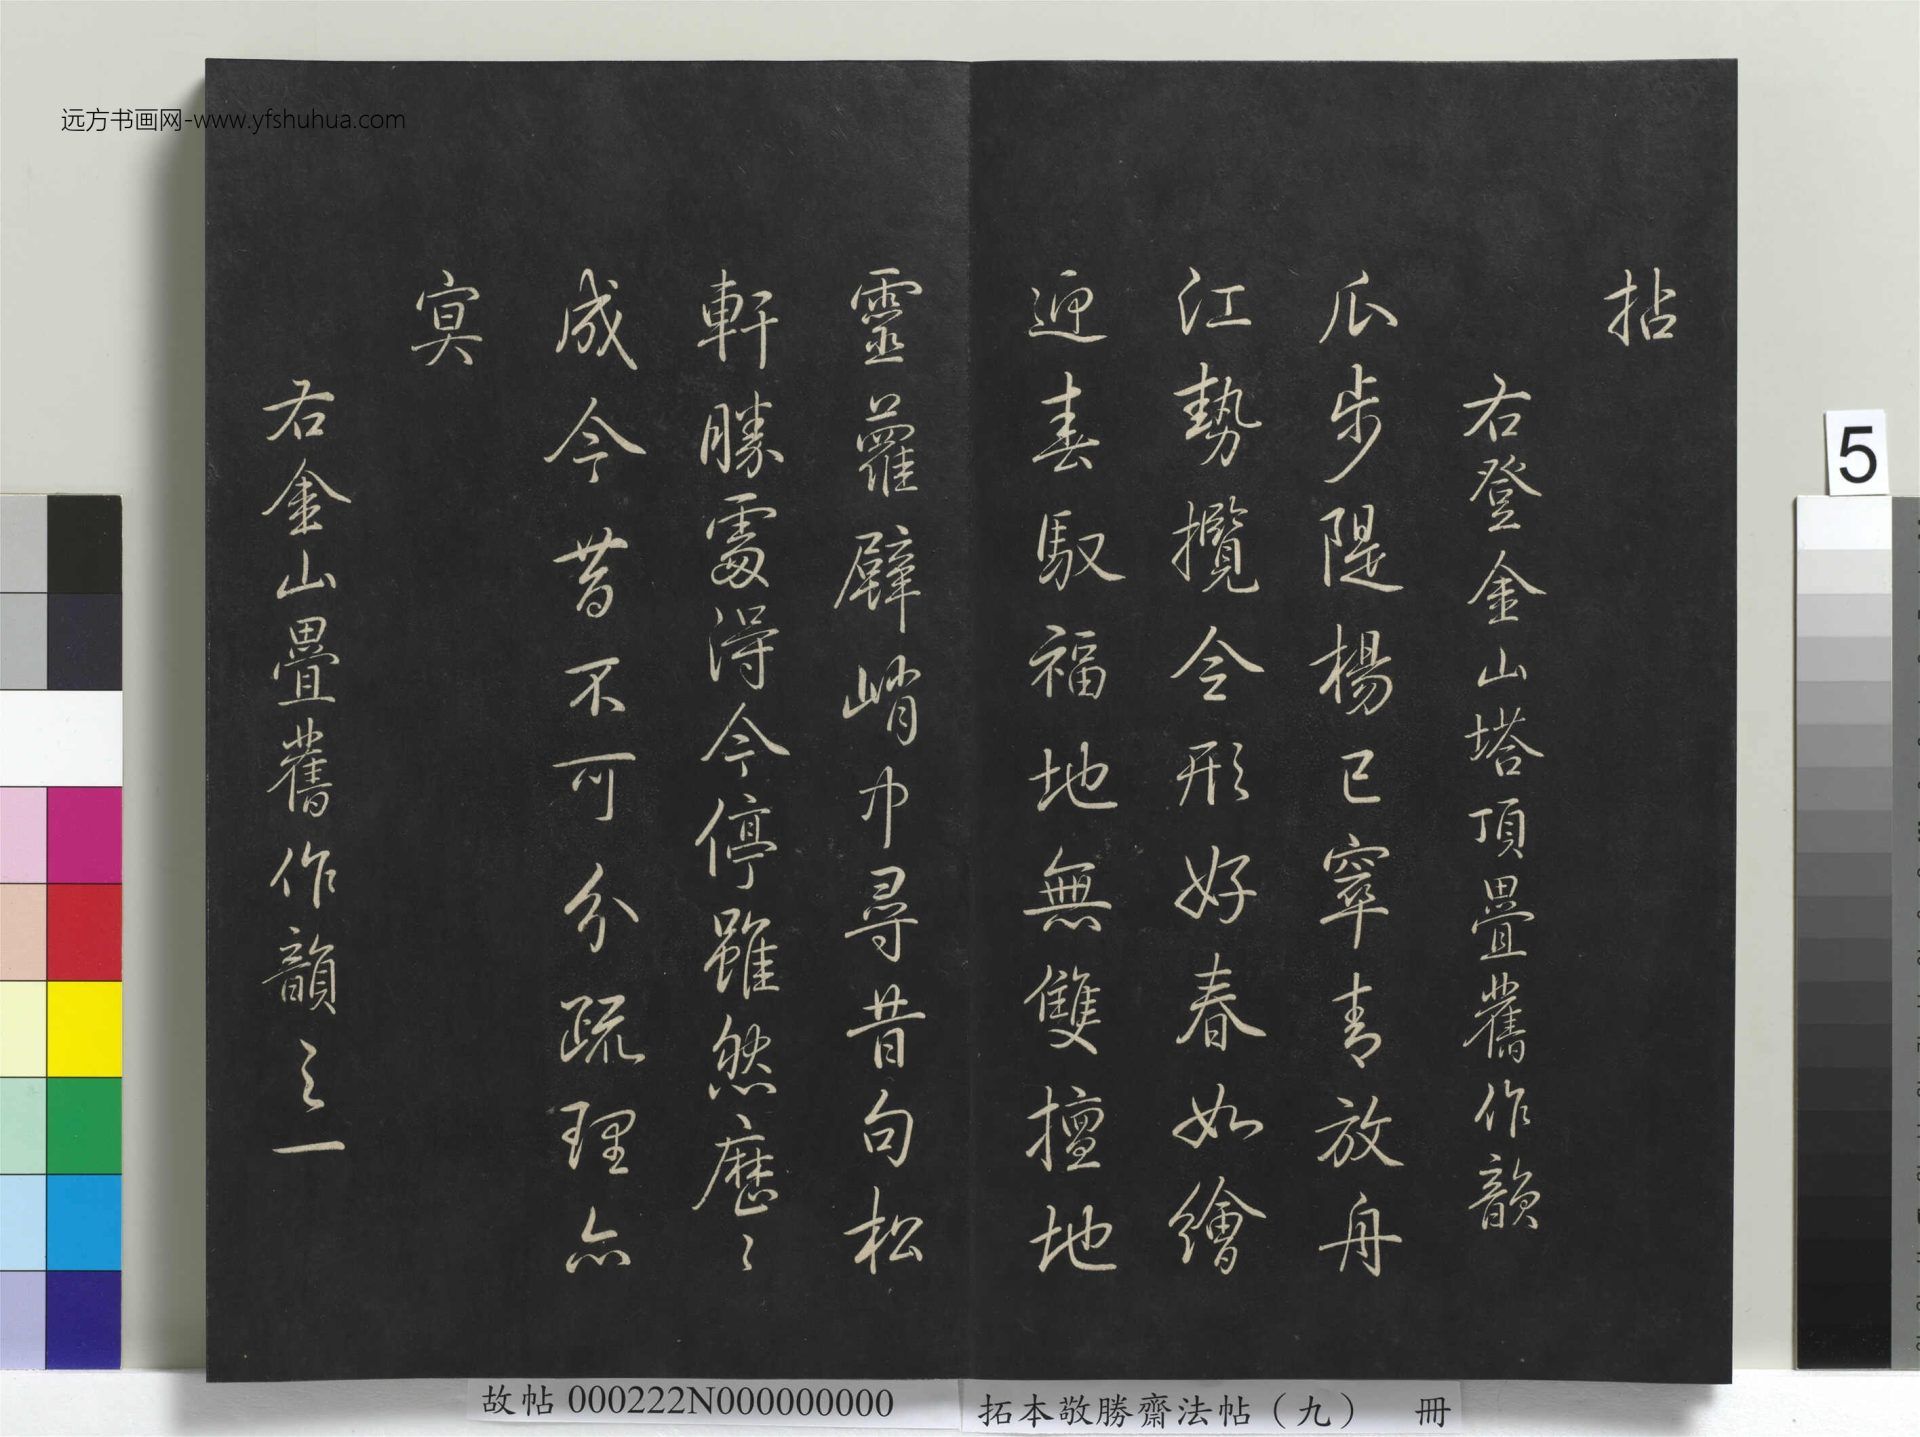 远方书画网-www.yfshuhua.com
拈
右登金山塔頂疊舊作韻
瓜步隄楊已窣青放舟
江勢攬令形好春如繪
迎春馭福地無雙擅地
靈蘿壁峭巾尋昔句松
軒勝霤淂今停雖然歷〻
成今昔不可分疏理亦
冥
右金山疊舊作韻之一
5
故帖 000222N000000000
拓本敬勝齋法帖（九） 冊